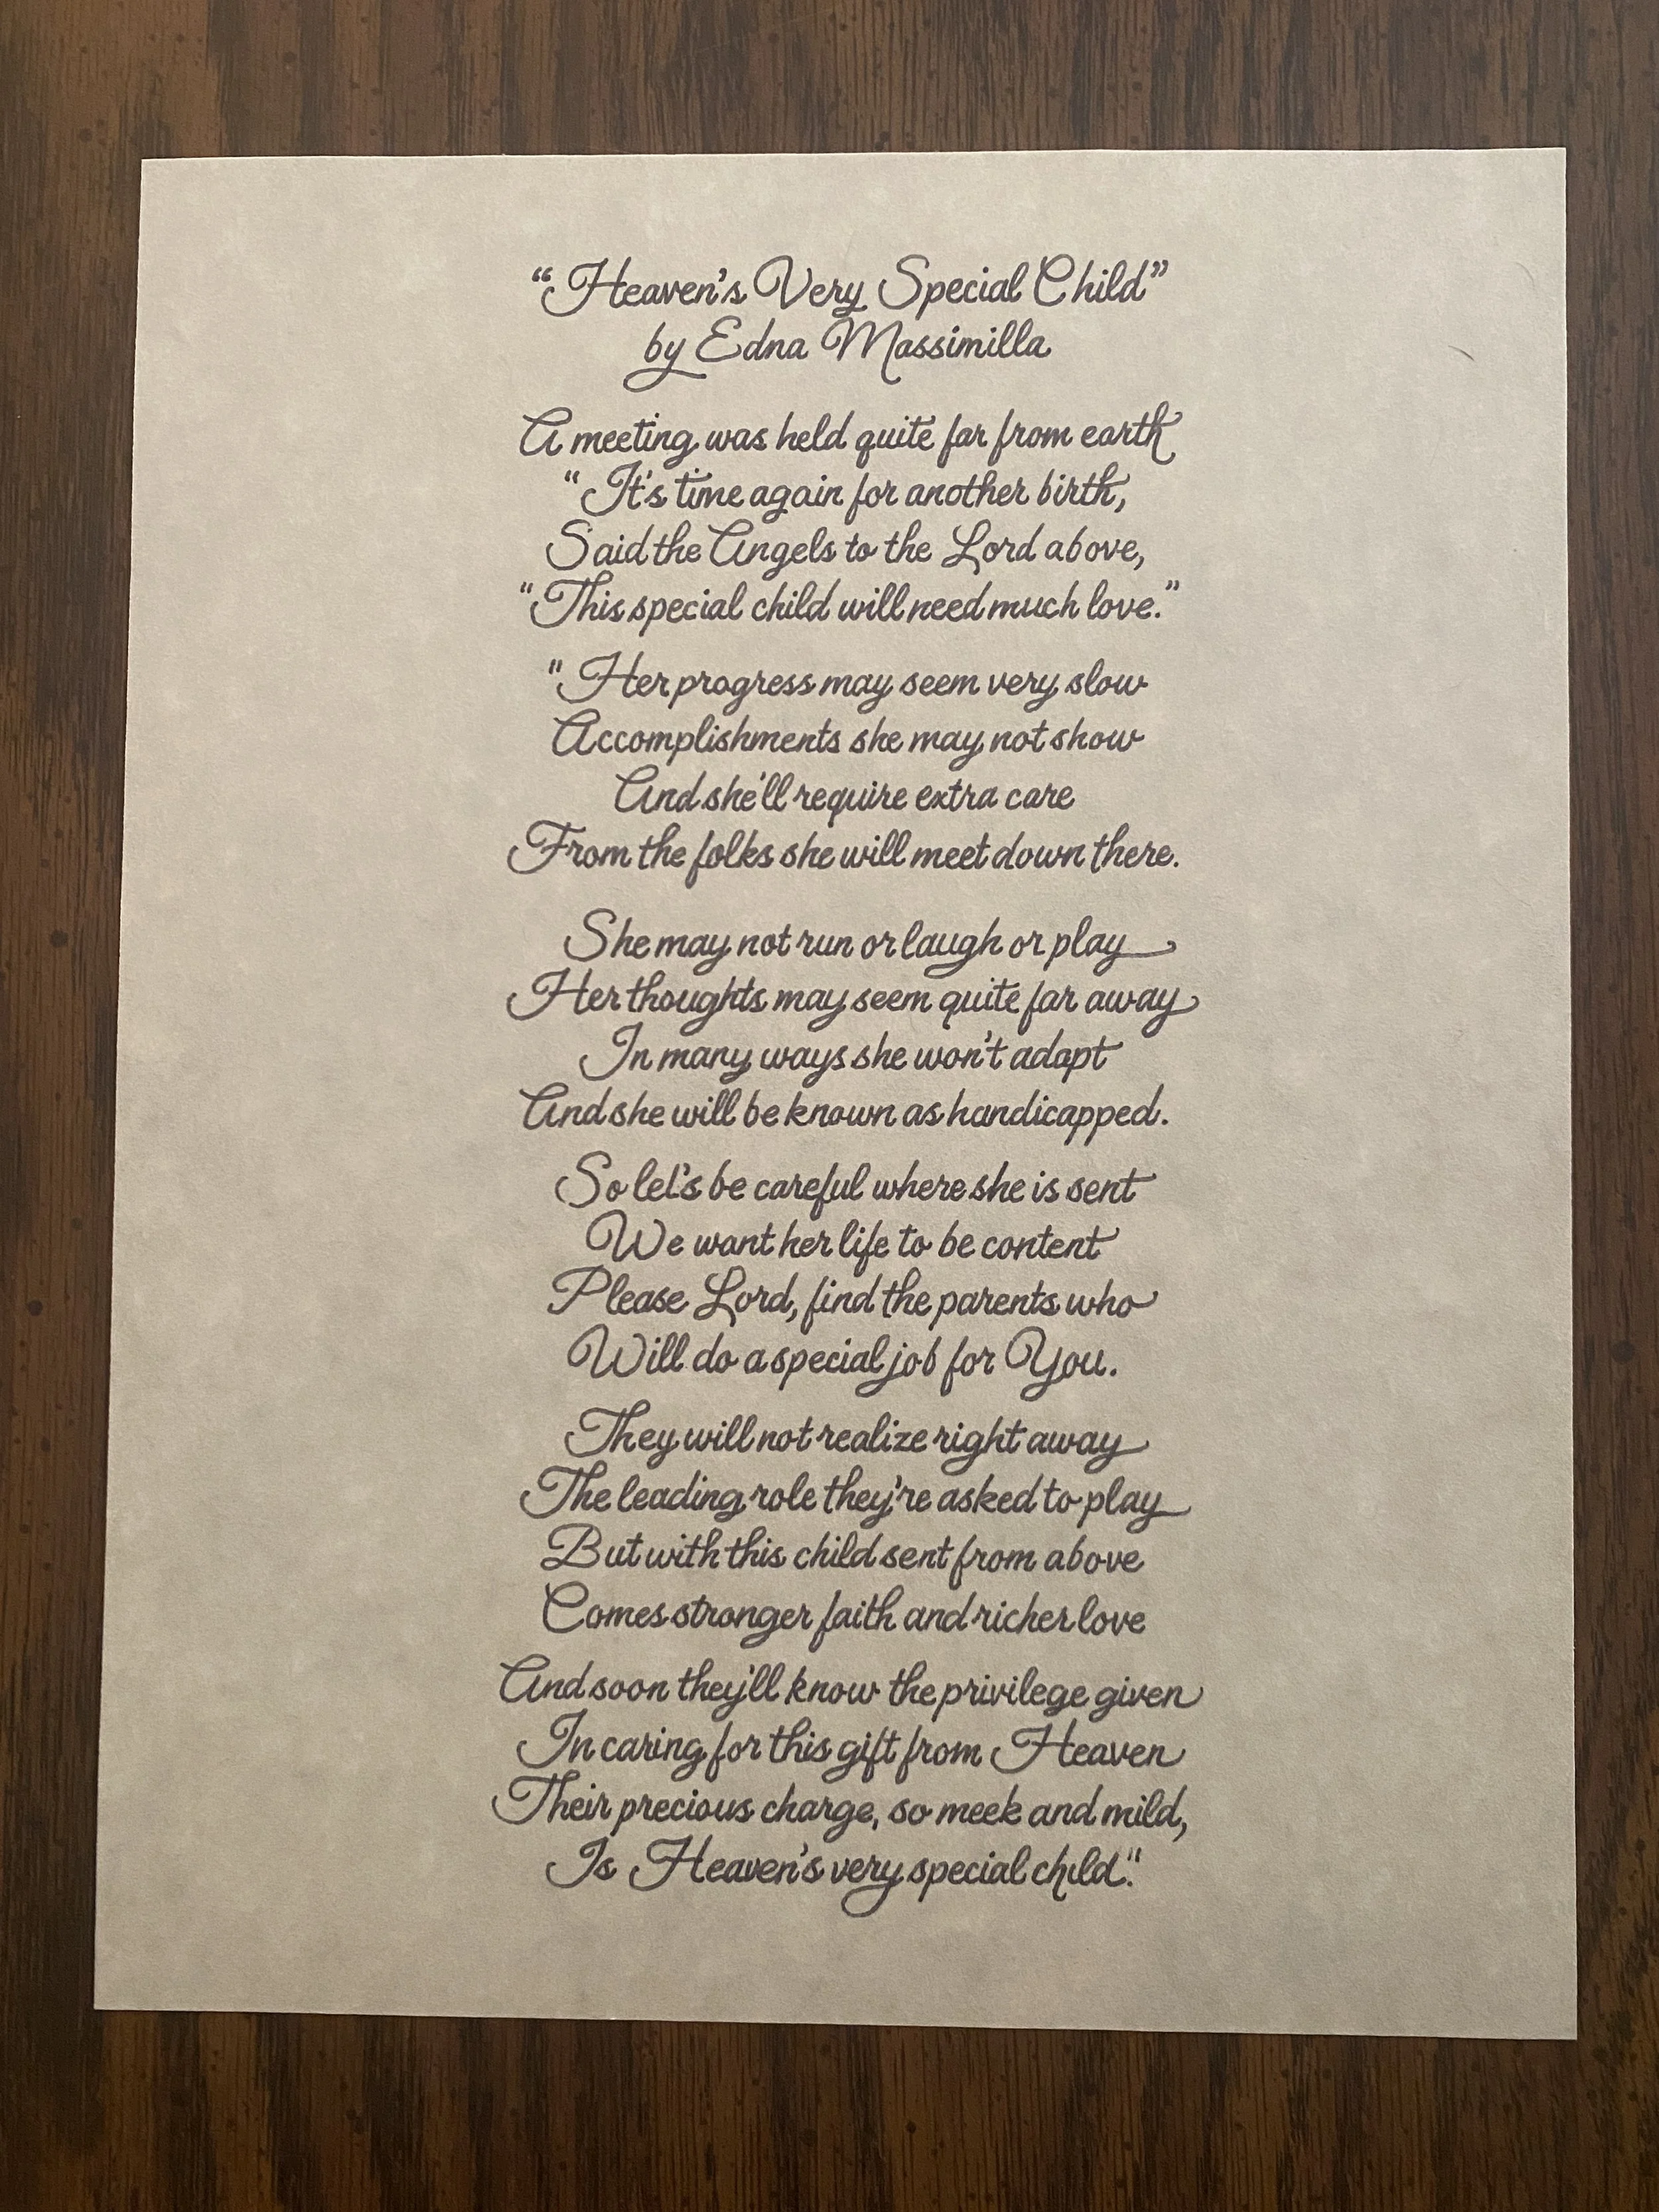 “Heaven's Very Special Child”
by Edna Massimilla
A meeting was held quite far from earth
“It's time again for another birth,
Said the Angels to the Lord above,
“This special child will need much love.”
"Her progress may seem very slow
Accomplishments she may not show
And she'll require extra care
From the folks she will meet down there.
She may not run or laugh or play
Her thoughts may seem quite far away
In many ways she won't adapt
And she will be known as handicapped.
So let's be careful where she is sent
We want her life to be content
Please Lord, find the parents who
Will do a special job for You.
They will not realize right away
The leading role they're asked to play
But with this child sent from above
Comes stronger faith and richer love
And soon they'll know the privilege given
In caring for this gift from Heaven
Their precious charge, so meek and mild,
Is Heaven's very special child."